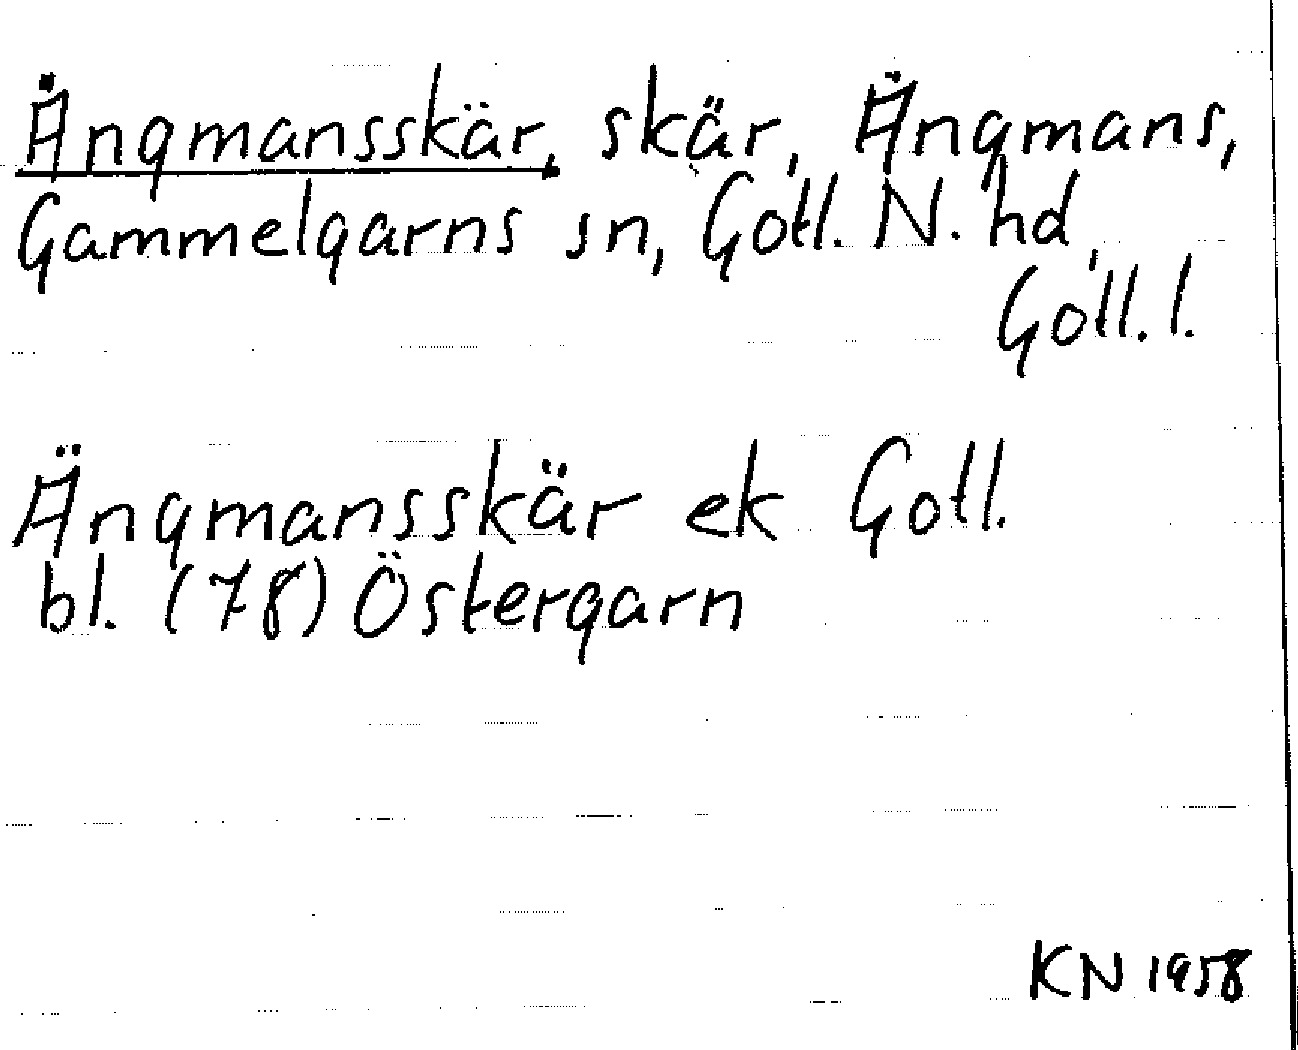 Ängmansskär, skär, Ängmans,
Gammelgarns sn, Gotl. N. hd,
Gotl. l.
Ängmansskär ek Gotl.
bl. (78) Östergarn
KN 1958